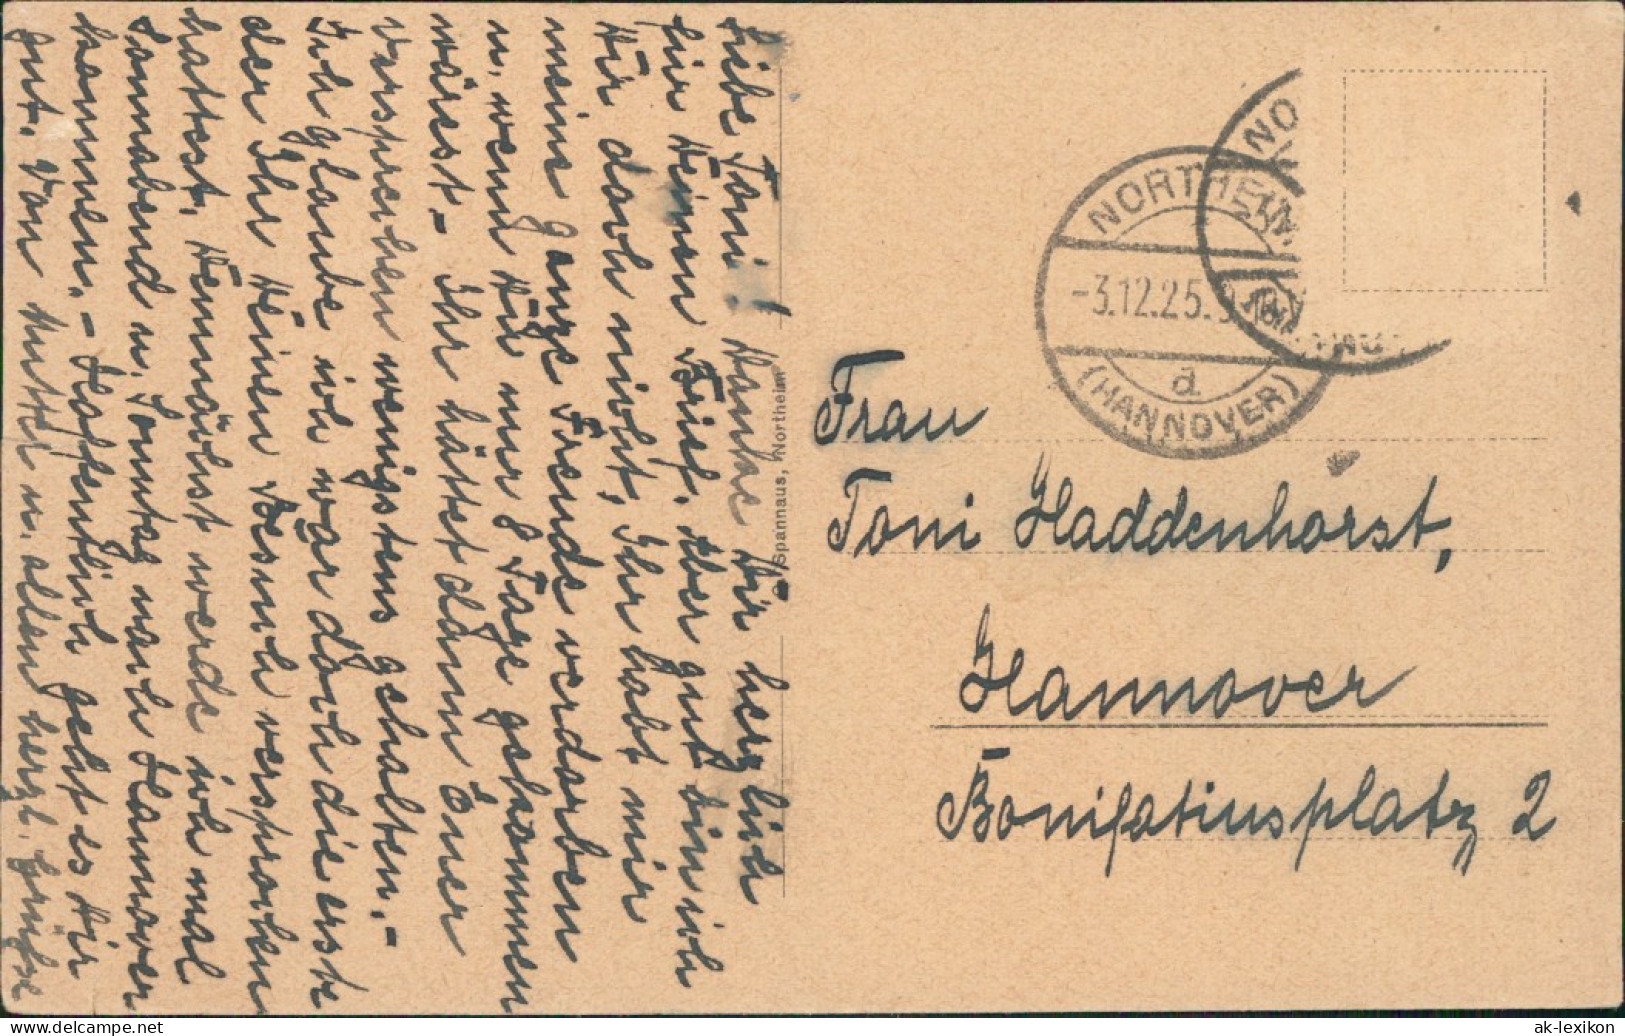 Liebe Toni! Danke Dir herzlich
für Deinen Brief. Aber gut bin ich
Dir doch nicht, Ihr habt mir
meine ganze Freude verdorben
u. wenn Du nur 8 Tage gekommen
wärest - Ihr hättet dann Euer
Versprechen wenigstens gehalten. -
Ich glaube ich wär doch die erste
der Ihr Deinen Besuch versprochen
hattest. Demnächst werde ich mal
Sonnabend u. Sonntag nach Hannover
kommen. - Hoffentlich geht es Dir
gut. Von Mutter u. allen herzl. Grüße
Spannaus, Northeim
NORTHEIM
-3.12.25.
a
(HANNOVER)
NO
Frau
Toni Haddenhorst,
Hannover
Bonifatiusplatz 2
ak-ansichtskarten.de
ak-lexikon